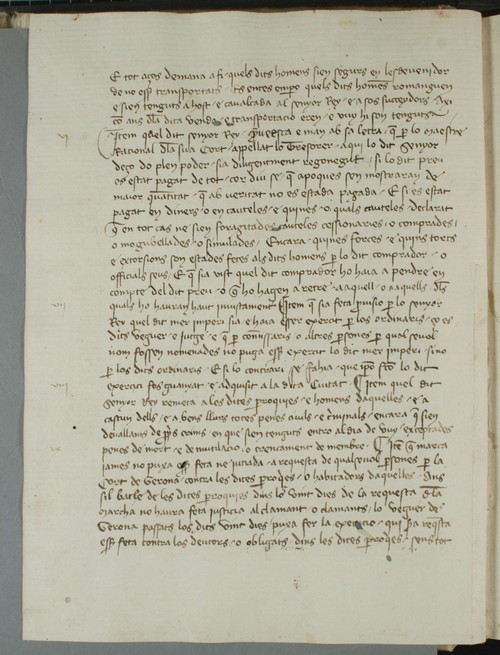 E tot aços demana a fi quels dits homens sien segurs en lesdevenidor
de no esser transportats ents entes empero quels dits homens romanguen
e sien tenguts a host e cavalcada al senyor Rey e a sos succehidors Axi
co ans dla dita venda e transportatio eren e vuy hi son tenguts
vi Item quel dit senyor Rey ab sa letra q p lo maestre
Racional dla sua Cort appellat lo Tresorer aqui lo dit senyor
deço do plen poder sia diligentment regonegut si lo dit preu
es estat pagat de tot cor diu se q apoques sen mostraran de
maior quatitat q ab veritat no es estada pagada E si es estat
pagat en diners o en cauteles e quines o quals cauteles declarat
q en tot cas ne sien foragitades cauteles cessionaries o comprades
o mogubellades o simulades Encara quines forces e quins torts
e extorsions son estades fetes als dits homens p lo dit comprador o
officials seus E q sia vist quel dit comprador ho haia a pendre en
compte del dit preu o q ho hagen a retre a aquell o a aquells dls
vii quals ho hauran haut iniustament Item q sia feta p lo senyor
Rey quel dit mer imperi sia e haia esser exercit p los ordinaris ço es
dits veguer e jutge e q p comissaris o altres psones p qual sevol
nom fossen nomenades no puga esser exercit lo dit mer imperi sino
p los dits ordinaris E si lo contrari se fahia que ipso fto lo dit
viii exercici fos guanyat e adquisit a la dita Ciutat Item quel dit
senyor Rey remeta a les dites proquies e homens daquelles e a
cascun dells e a bens llurs totes penes civils e criminals encara que sien
devallants de crims en que sien tenguts entro al dia de vuy exceptades
penes de mort e de mutilatio o trencament de membre Ite q marca
ix james no puxa esser feta ne jutiada a requesta de qualsevol psones p la
Cort de Gerona contra les dites proqes o habitadors daquelles Ans
sil batle de les dites proquies dins los vint dies de la requesta
marcha no haura feta justicia al clamant o clamants lo veguer de
Gerona passats los dits vint dies puxa fer la executio qui
esser feta contra los deutors o obligats dins les dites proqes sens tot